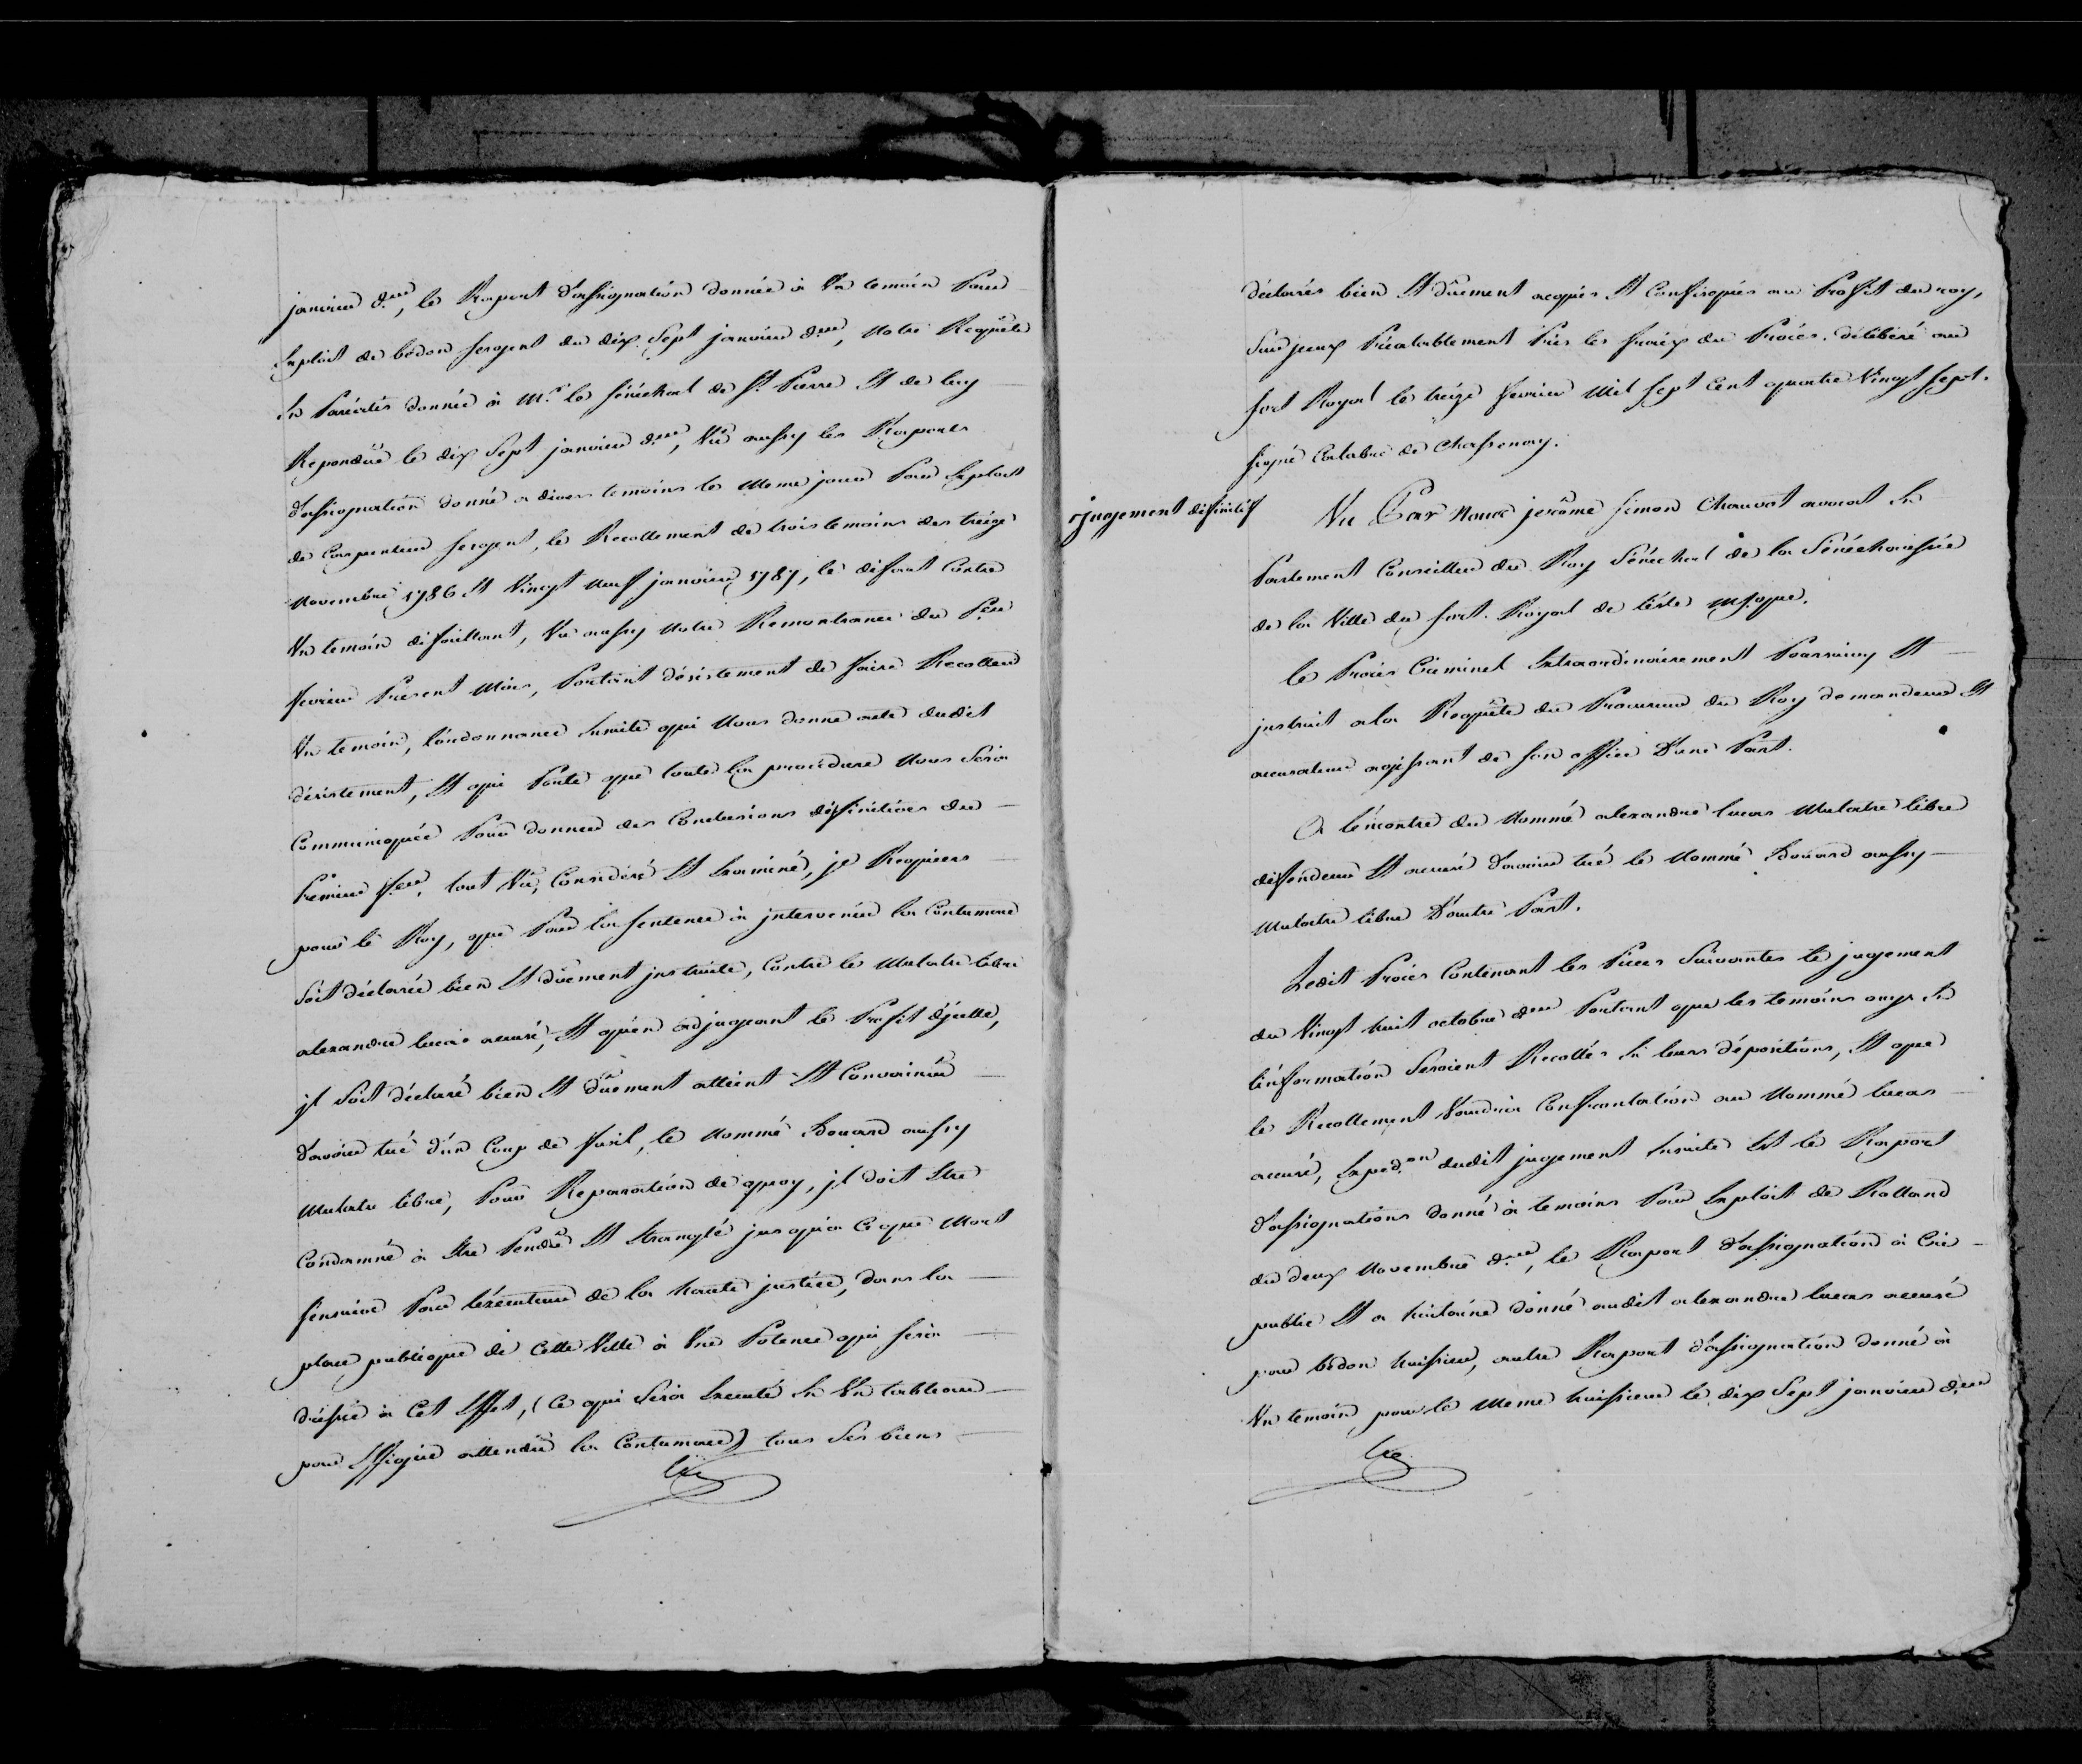 janvier d.er, le Raport d'assignation donnée à Un temoin Par
Exploit de bédon sergent du dix Sept janvier d.er, Notre Requête
En Paréatis donnée à M.r le sénéchal de S.t Pierre Et de luy
Repondüe le dix Sept janvier d.er, Vû aussy les Raports
d'assignation donné a divers temoins le Meme jour Par Exploit
de Carpentier sergent, le Recollement de trois temoins des treize
Novembre 1786 Et Vingt Neuf janvier 1787, le défaut Contre
Un temoin défaillant, Vu aussy Notre Remontrance du P.er
fevrier Présent Mois, Portant désistement de faire Recoller
Un temoin, l'ordonnance Ensuite qui Nous donne acte dudit
désistement, Et qui Porte que toute la procédure Nous Sera
Communiquée Pour donner des Conclusions définitives du
Premier f.er, tout Vû, Considéré Et Examiné, je Requiers
pour le Roy, que Par la sentence à intervenir la Contumace
Soit déclarée bien Et düement instruite, Contre le Mulatre libre
alexandre lucas accusé, Et qu'en adjugeant le Profit d'jcelle,
jl Soit déclaré bien Et düement atteint Et Convaincu
d'avoir tué d'un Coup de fusil, le Nommé Edouard aussy
Mulatre libre, Pour Reparation de quoy, jl doit Etre
Condamné à Etre Pendû Et Etranglé jusqu'à Ce que Mort
s'ensuive Par l'éxécuteur de la haute justice, dans la
place publique de Cette Ville à Une Potence qui sera
dréssée à Cet Effet, (Ce qui Sera Executé En Un tableau
pour Effigie attendu la Contumace) tous Ses biens
déclarés bien Et düement acquis Et Confisqués au Profit du roy,
Sur jceux Préalablement Pris les fraix du Procès. délibéré au
fort Royal le treize fevrier Mil sept Cent quatre Vingt sept.
signé Calabre de Chassenay.
jugement définitif
Vu Par Nous jerôme simon Chauvot avocat En
Parlement Conseiller du Roy Sénéchal de la Sénéchaussée
de la Ville du fort Royal de l'isle M/que.
le Procès Criminel Extraordinairement Poursuivy Et
instruit a la Requête du Procureur du Roy demandeur Et
accusateur agissant de son office D'une Part.
A l'encontre du Nommé alexandre lucas Mulatre libre
défendeur Et accusé d'avoir tué le Nommé Edouard aussy
Mulatre libre D'autre Part.
Ledit Procès Contenant les Pieces Suivantes le jugement
du Vingt huit octobre d.er Portant que les temoins ouys En
l'information Seroient Recollés En leurs dépositions, Et que
le Recollement Vaudra Confrontation au Nommé lucas
accusé, Exped.on dudit jugement Ensuite Est le Raport
d'assignations donné à temoins Par Exploit de Rolland
du deux Novembre d.er, le Raport d'assignation à Cri
public Et a huitaine donné audit alexandre lucas accusé
par bédon huissier, autre Raport d'assignation donné à
Un temoin par le Meme huissier le dix Sept janvier d.er